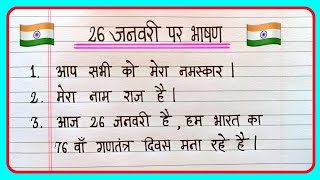 26 जनवरी पर भाषण
1. आप सभी को मेरा नमस्कार |
2. मेरा नाम राज है |
3. आज 26 जनवरी है , हम भारत का
76 वाँ गणतंत्र दिवस मना रहे है |